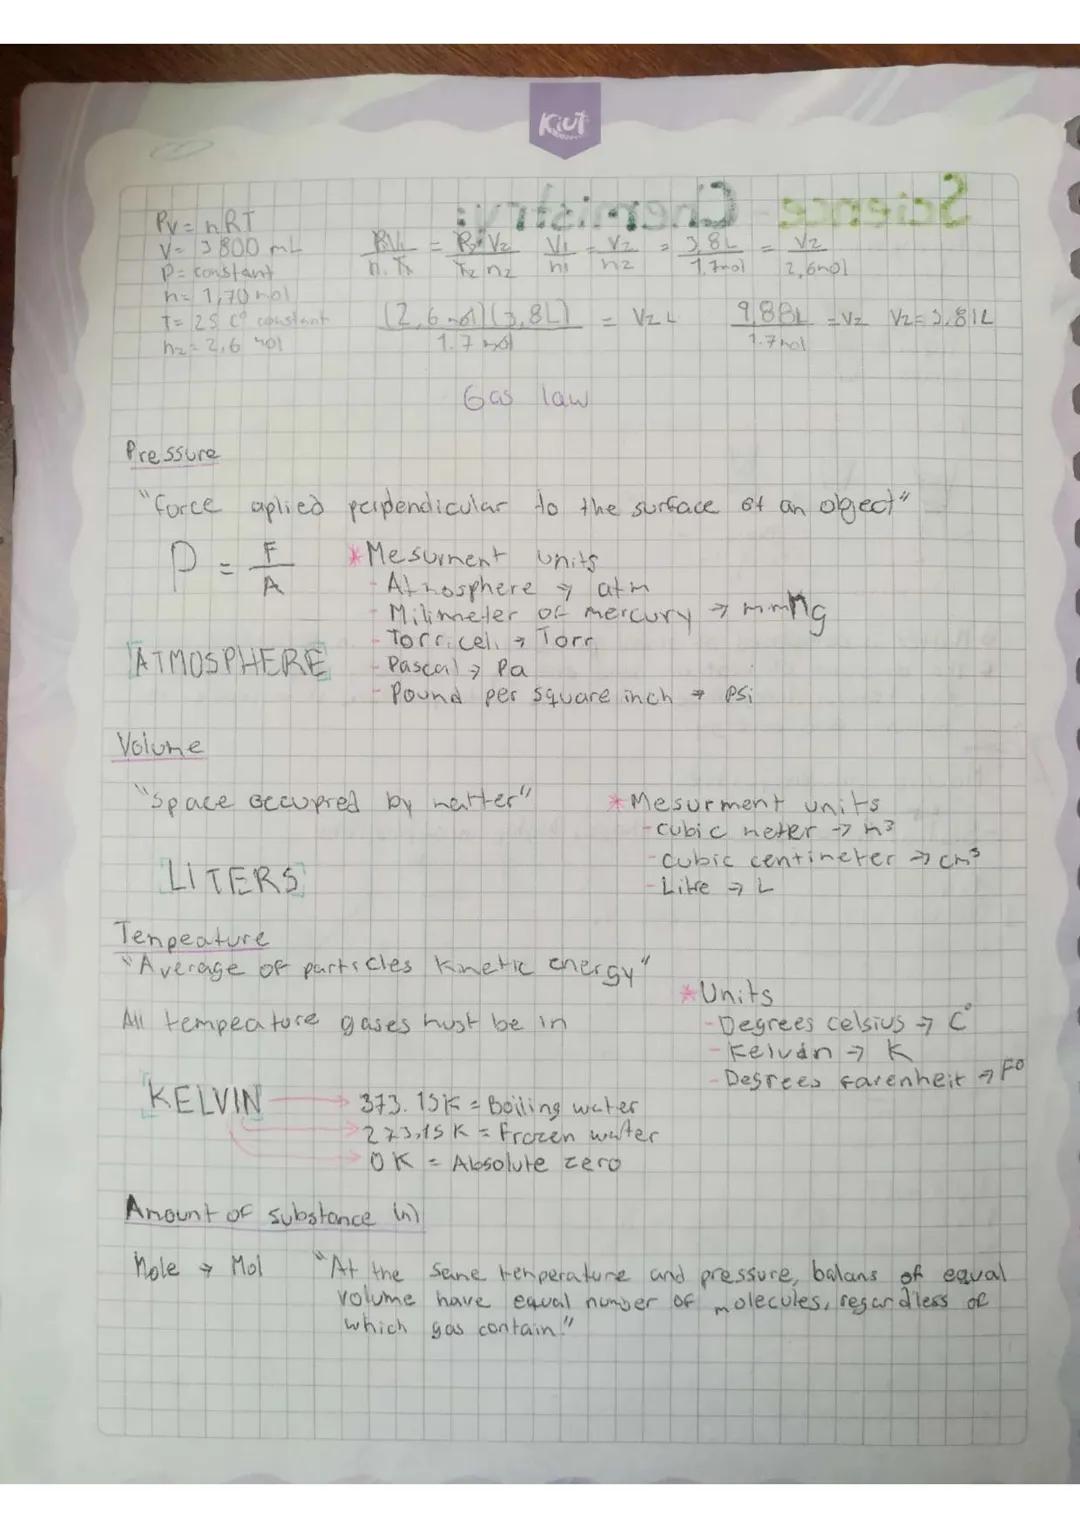 Kiut
Science Chemistry:
PV = nRT
V = 3800 mL
P = constant
n = 1,70 mol
T = 25 C° constant
n2 = 2,6 mol
P1V1 / n1 T1 = P2 V2 / T2 n2 V1 / n1 = V2 / n2 = 3,8L / 1,7mol = V2 / 2,6mol
(2,6 mol)(3,8L) / 1.7 mol = V2 L 9,88L / 1.7mol = V2 V2 = 5.81L
Gas law
Pressure
"force aplied perpendicular to the surface of an object"
P = F / A
* Mesurment units
- Atmosphere → atm
- Milimeter of mercury → mmHg
- Torriceli → Torr
ATMOSPHERE
- Pascal → Pa
- Pound per square inch → Psi
Volume
"Space occupied by matter"
* Mesurment units
- cubic meter → m³
- cubic centimeter → cm³
LITERS
- Litre → L
Tempeature
"Average of particles kinetic energy"
* Units
All tempeature gases must be in
- Degrees celsius → C°
- Kelvin → K
- Degrees farenheit → F°
KELVIN
373.15K = Boiling water
273,15 K = Frozen water
0 K = Absolute zero
Amount of substance (n)
Mole → Mol
"At the same temperature and pressure, balans of equal
volume have equal number of molecules, regardless of
which gas contain."